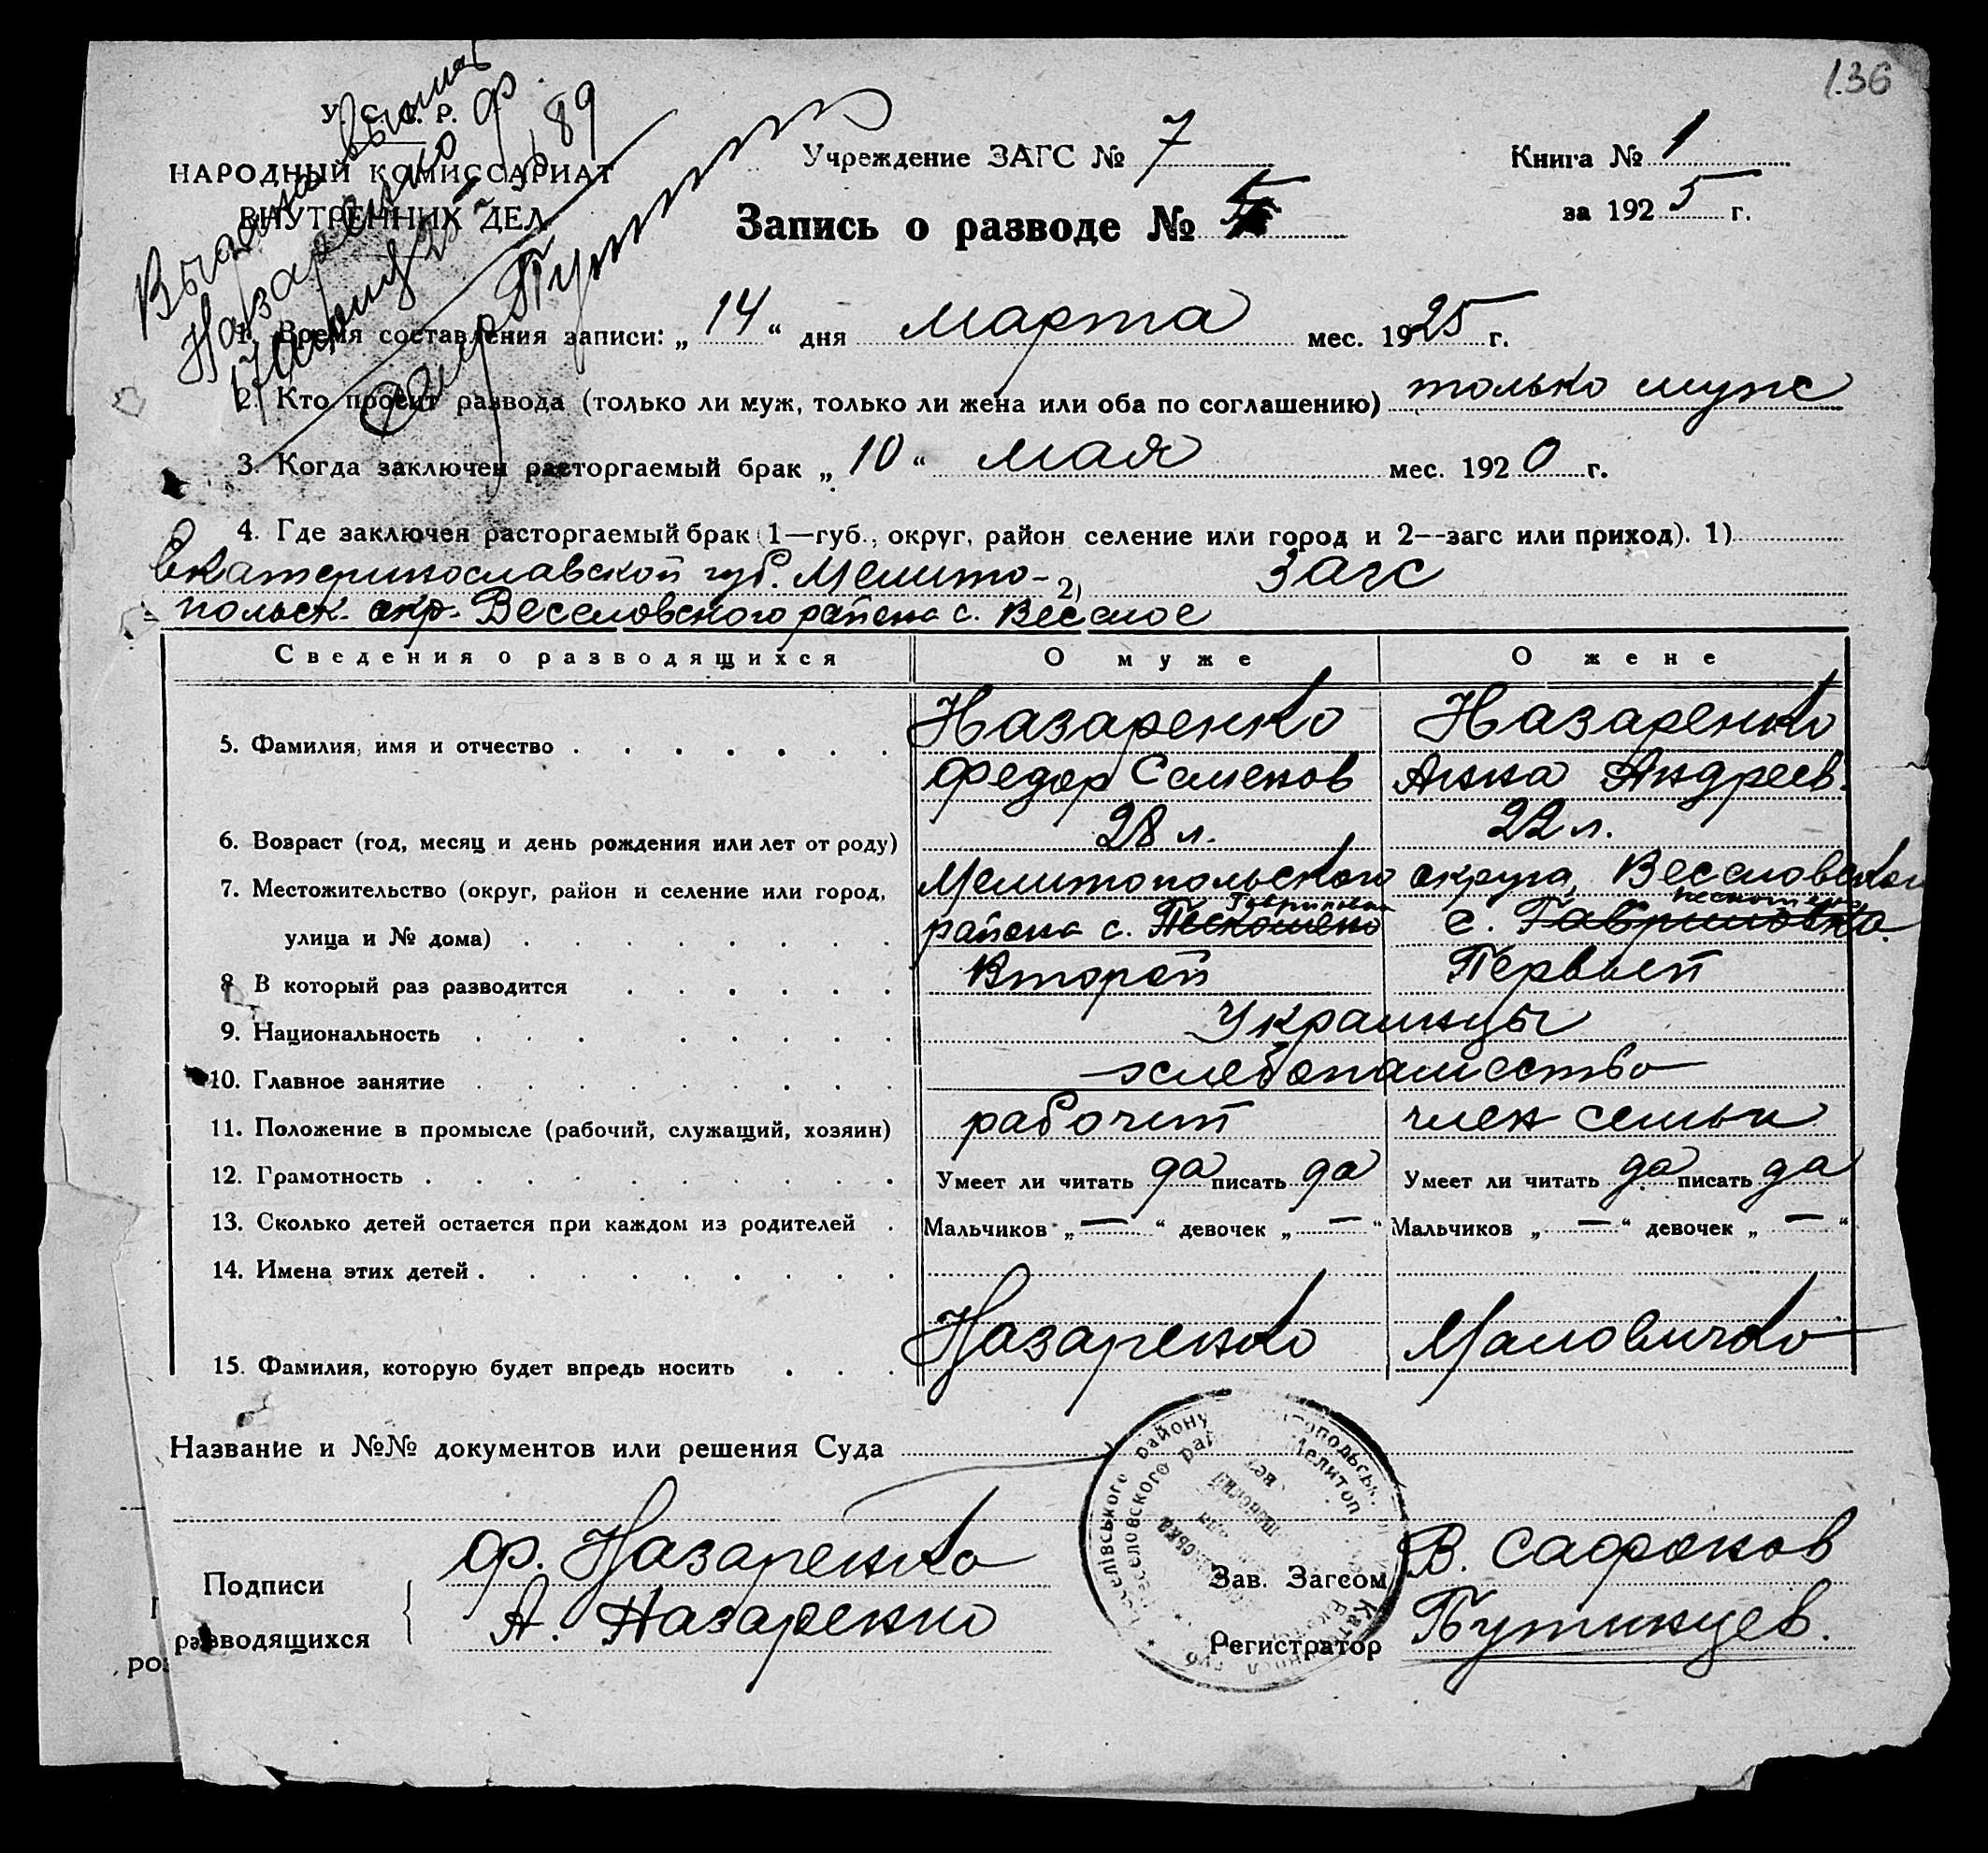 136
У. С. С. Р.
НАРОДНЫЙ КОМИССАРИАТ
ВНУТРЕННИХ ДЕЛ
Выдана
Назаренко Ф
89
Учреждение ЗАГС № 7
Книга № 1
за 1925 г.
Запись о разводе № 5
1. Время составления записи: „ 14 “ дня марта мес. 1925 г.
2. Кто просит развода (только ли муж, только ли жена или оба по соглашению) только муж
3. Когда заключен расторгаемый брак „ 10 “ мая мес. 1920 г.
4. Где заключен расторгаемый брак (1—губ., округ, район селение или город и 2--загс или приход). 1)
Екатеринославской губ. Мелито- 2) Загс
польск. окр. Веселовского района с. Веселое
Сведения о разводящихся О муже О жене
5. Фамилия, имя и отчество Назаренко Назаренко
Федор Семенов Анна Андреев.
6. Возраст (год, месяц и день рождения или лет от роду) 28 л. 22 л.
7. Местожительство (округ, район и селение или город, Мелитопольского округа, Веселовского
улица и № дома) района с. Пескошено Гавриловка с. Гавриловка Пескошено
8. В который раз разводится Второй Первый
9. Национальность Украинцы
10. Главное занятие хлебопашество
11. Положение в промысле (рабочий, служащий, хозяин) рабочий член семьи
12. Грамотность Умеет ли читать да писать да Умеет ли читать да писать да
13. Сколько детей остается при каждом из родителей Мальчиков „ — “ девочек „ — “ Мальчиков „ — “ девочек „ — “
14. Имена этих детей
15. Фамилия, которую будет впредь носить Назаренко Маловичко
Название и №№ документов или решения Суда
Подписи
разводящихся
Ф. Назаренко
А. Назаренко
Зав. Загсом В. Сафонов
Регистратор Бутинцев.